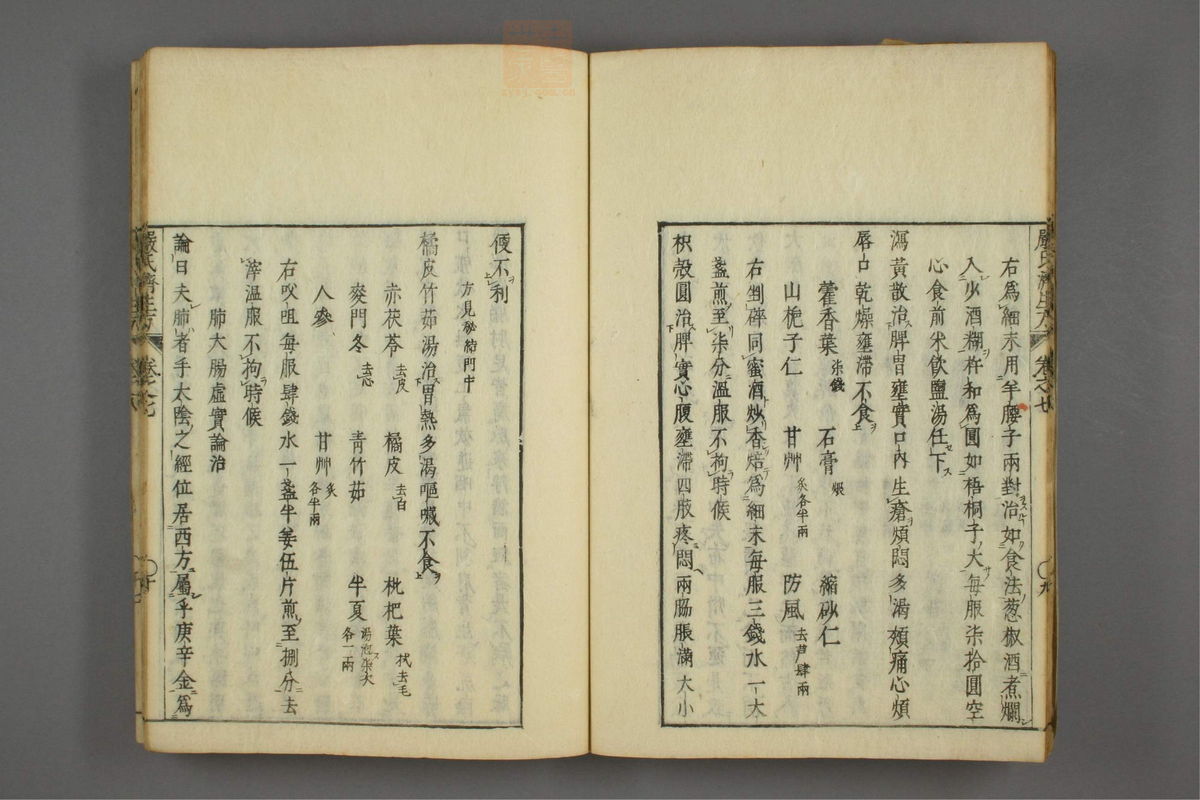 右爲細末用羊腰子兩對治如食法葱椒酒煮爛
入少酒糊杵和爲圓如梧桐子大每服柒拾圓空
心食前米飲鹽湯任下
瀉黃散治脾胃壅實口內生瘡煩悶多渴頰痛心煩
唇口乾燥壅滯不食
藿香葉柒錢 石膏煅 縮砂仁
山梔子仁 甘艸炙各半兩 防風去芦肆兩
右剉碎同蜜酒炒香焙爲細末每服三錢水一大
盞煎至柒分溫服不拘時候
枳殼圓治脾實心腹壅滯四肢疼悶兩脇脹滿大小
便不利
方見秘結門中
橘皮竹茹湯治胃熱多渴嘔噦不食
赤茯苓去皮 橘皮去白 枇杷葉拭去毛
麥門冬去心 青竹茹 半夏湯泡柒次各一兩
人參 甘艸炙各半兩
右㕮咀每服肆錢水一盞半姜伍片煎至捌分去
滓溫服不拘時候
肺大腸虛實論治
論曰夫肺者手太陰之經位居西方屬乎庚辛金爲